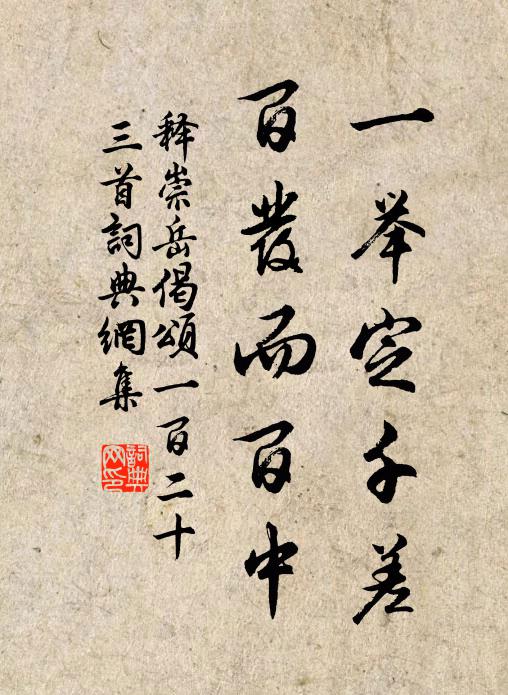 一举定千差
百發而百中
释崇岳偈頌一百二十
三首詞典網集
詞典
网印